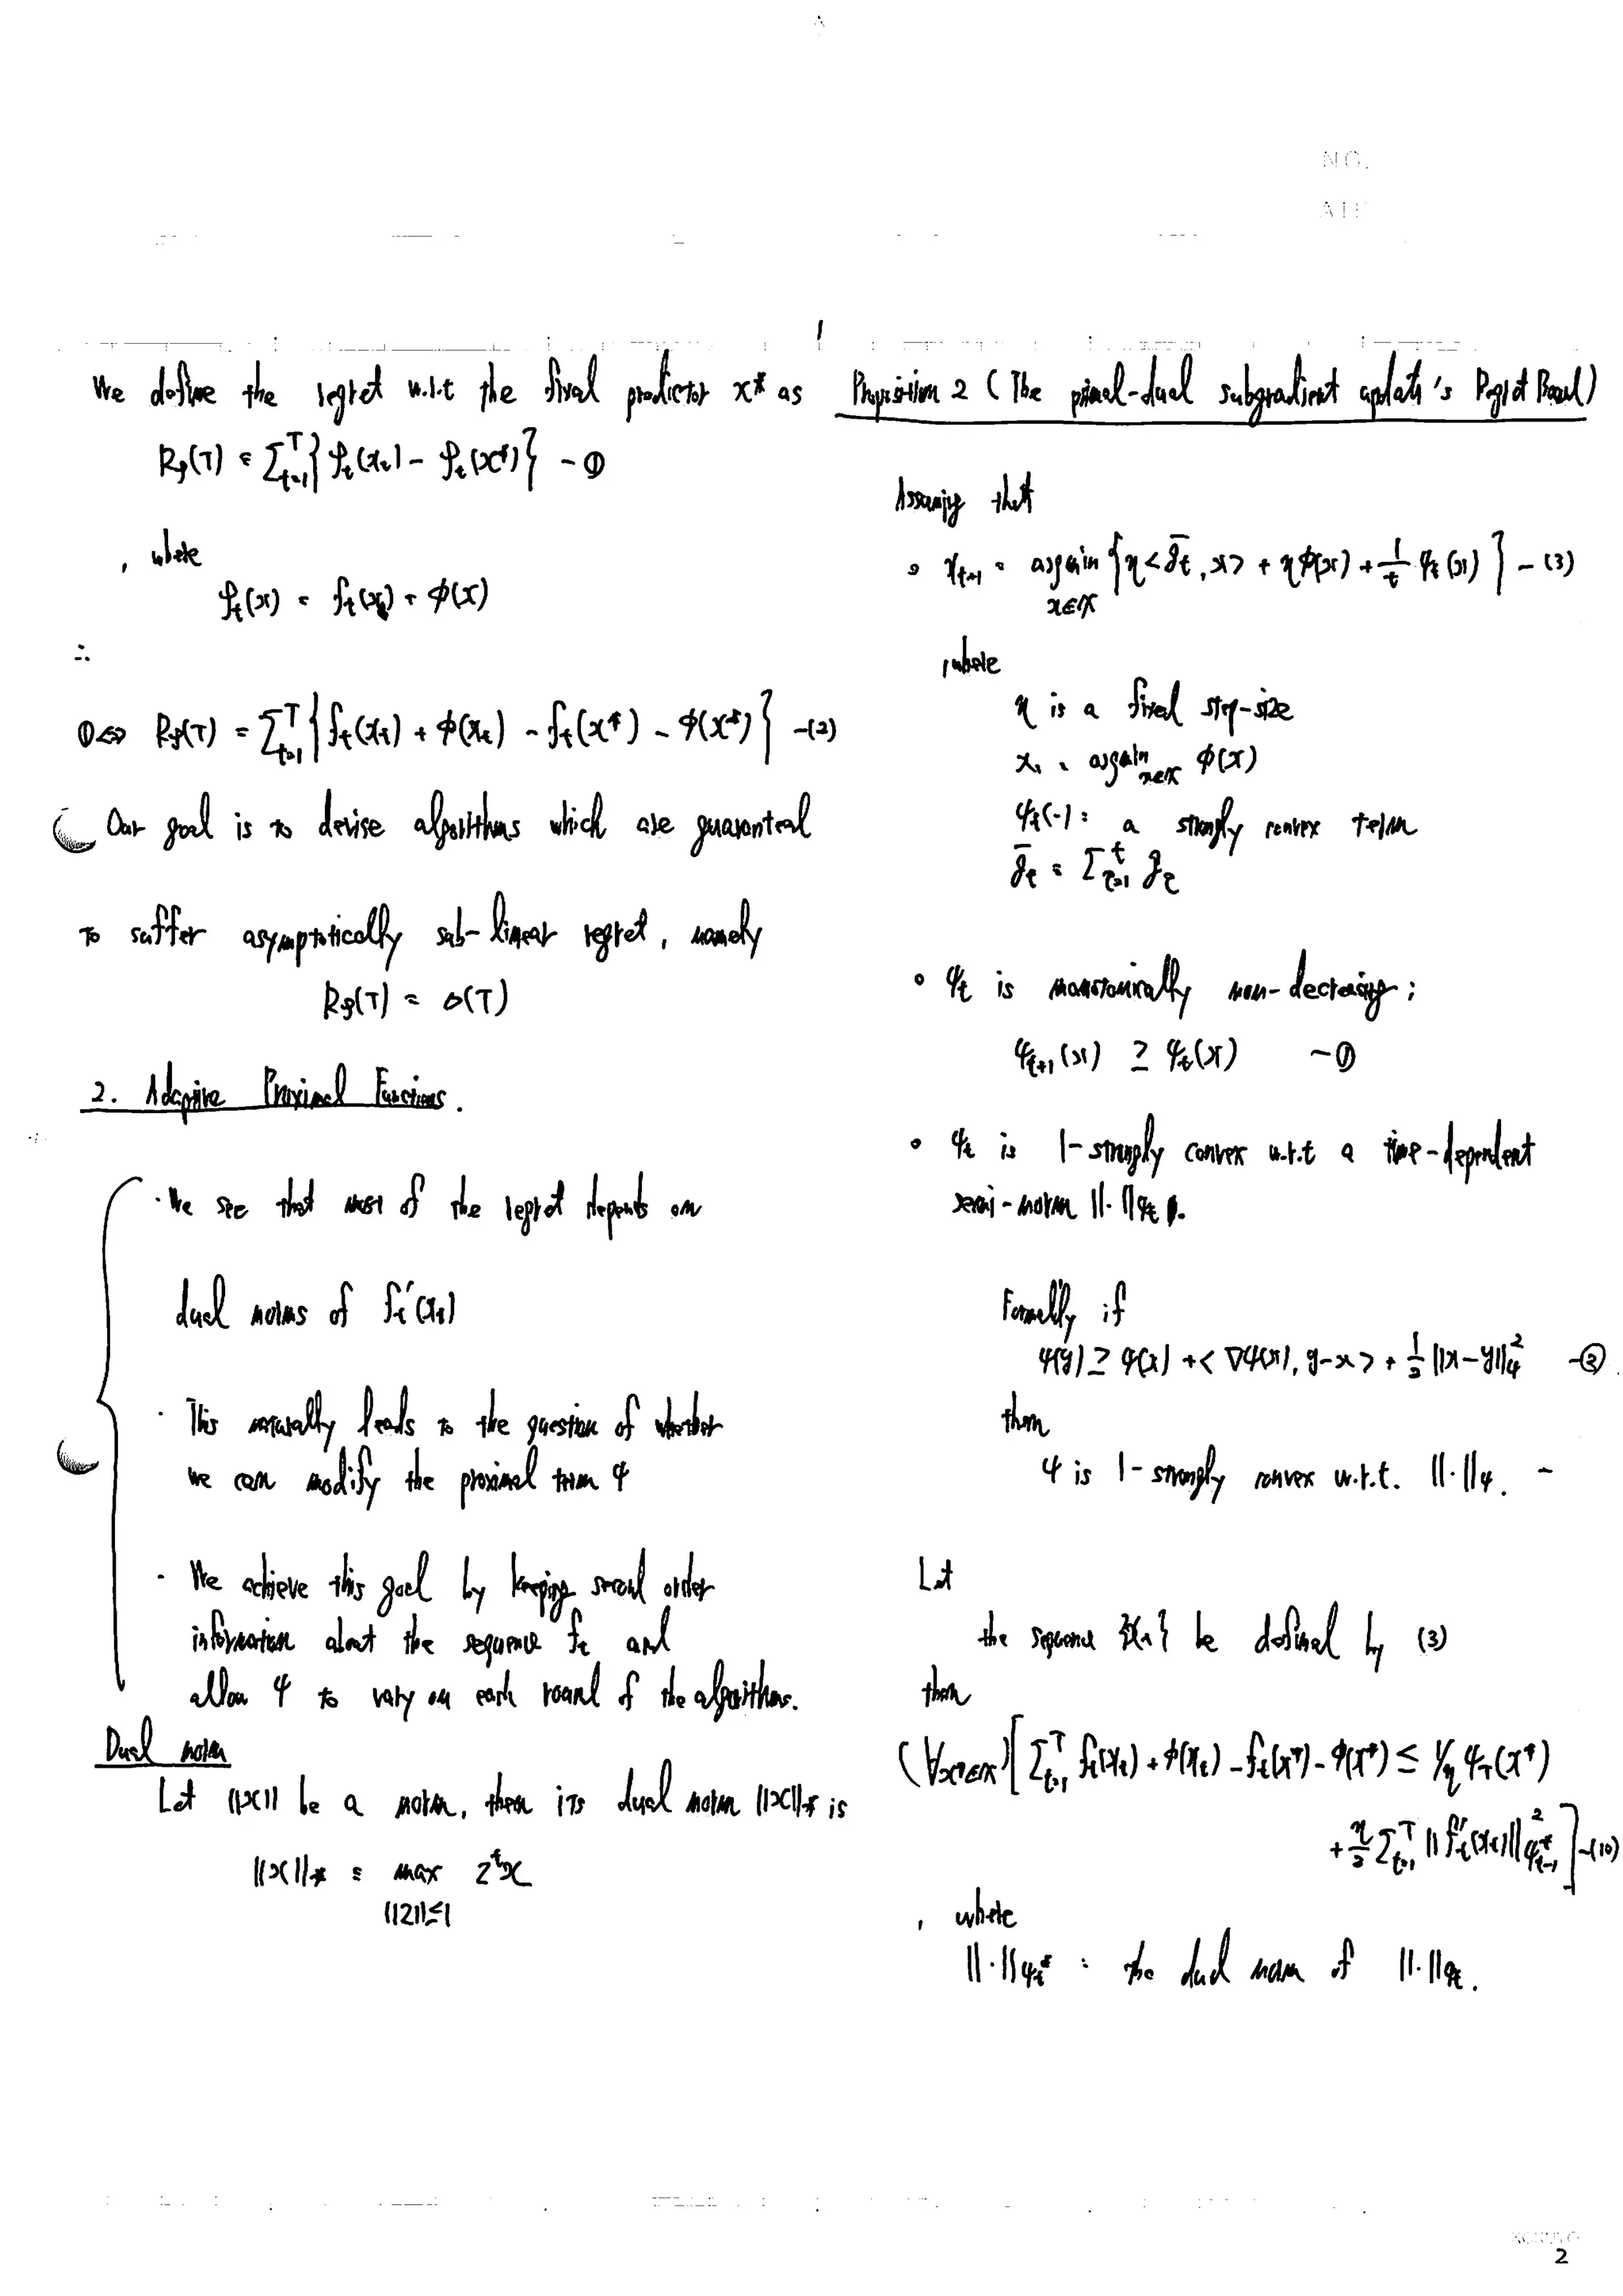 NO.
1
We define the regret w.r.t the fixed predictor x* as
R_φ(T) = Σ_{t=1}^T { φ_t(x_t) - φ_t(x*) } - ①
, where
φ_t(x) = f_t(x) + ϕ(x)
∴
①⇔ R_φ(T) = Σ_{t=1}^T { f_t(x_t) + ϕ(x_t) - f_t(x*) - ϕ(x*) } -(2)
Our goal is to devise algorithms which are guaranteed
to suffer asymptotically sub-linear regret, namely
R_φ(T) = o(T)
2. Adaptive Proximal Functions.
· We see that most of the regret depends on
dual norms of f_t'(x_t)
· This naturally leads to the question of whether
we can modify the proximal term ψ
· We achieve this goal by keeping second order
information about the sequence f_t and
allow ψ to vary on each round of the algorithms.
Dual norm
Let ||x|| be a norm, then its dual norm ||x||_* is
||x||_* = max z^t x
||z||≤1
Proposition 2 (The primal-dual subgradient update's Regret Bound)
Assuming that
∘ x_{t+1} = argmin { η<ḡ_t, x> + ηϕ(x) + 1/t ψ_t(x) } - (3)
x∈X
, where
η is a fixed step-size
x_1 = argmin_{x∈X} ϕ(x)
ψ_t(·): a strongly convex term
ḡ_t = Σ_{τ=1}^t g_τ
∘ ψ_t is monotonically non-decreasing;
ψ_{t+1}(x) ≥ ψ_t(x) - ①
∘ ψ_t is 1-strongly convex w.r.t a time-dependent
semi-norm ||·||_{ψ_t}.
Formally if
ψ(y) ≥ ψ(x) + < ∇ψ(x), y-x > + 1/2 ||x-y||_ψ^2 -②
then
ψ is 1-strongly convex w.r.t. ||·||_ψ. -
Let
the sequence {x_t} be defined by (3)
then
(∀x*∈X)[ Σ_{t=1}^T f_t(x_t) + ϕ(x_t) - f_t(x*) - ϕ(x*) ≤ 1/η ψ_T(x*)
+ η/2 Σ_{t=1}^T ||f_t'(x_t)||^2_{ψ*_{t-1}} ] -(10)
, where
||·||_{ψ_t*} : the dual norm of ||·||_{ψ_t}.
2